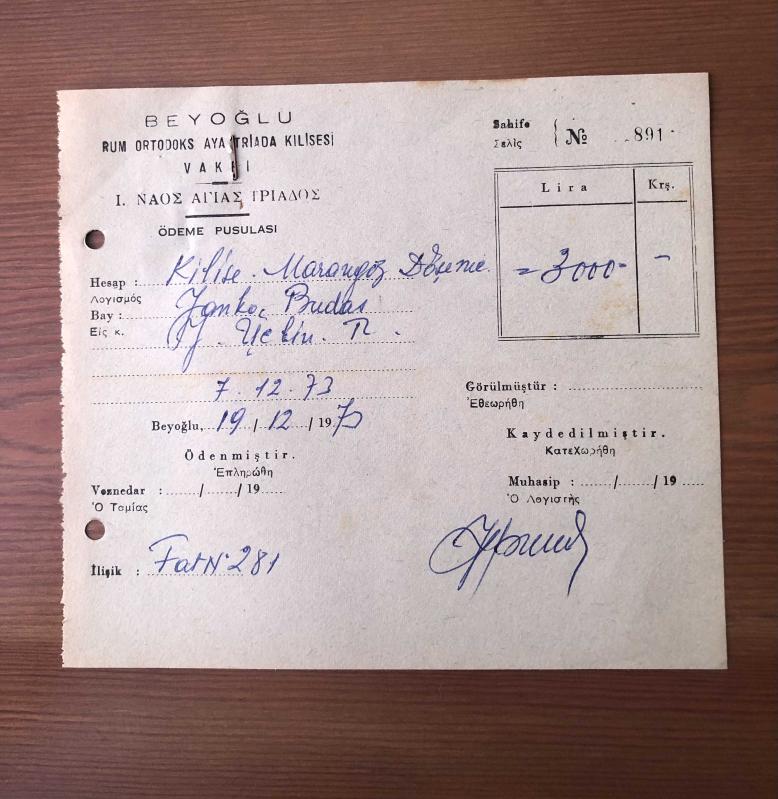 BEYOĞLU
RUM ORTODOKS AYA TRİADA KILİSESİ
VAKFI
Ι. ΝΑΟΣ ΑΓΙΑΣ ΤΡΙΑΔΟΣ
ÖDEME PUSULASI
Sahife
Σελὶς
№ 891
Lira Krş.
=3000- -
Hesap : Kilise. Marangoz Döşeme.
Λογισμός
Bay : Yanko,
Εἰς κ. Üç bin. TL.
7.12.73
Beyoğlu, 19 / 12 / 1973
Görülmüştür :
Ἐθεωρήθη
Ödenmiştir.
Ἐπληρώθη
Kaydedilmiştir.
Κατεχωρήθη
Veznedar : / / 19
Ὁ Ταμίας
Muhasip : / / 19
Ὁ Λογιστὴς
İlişik : Fat No 281